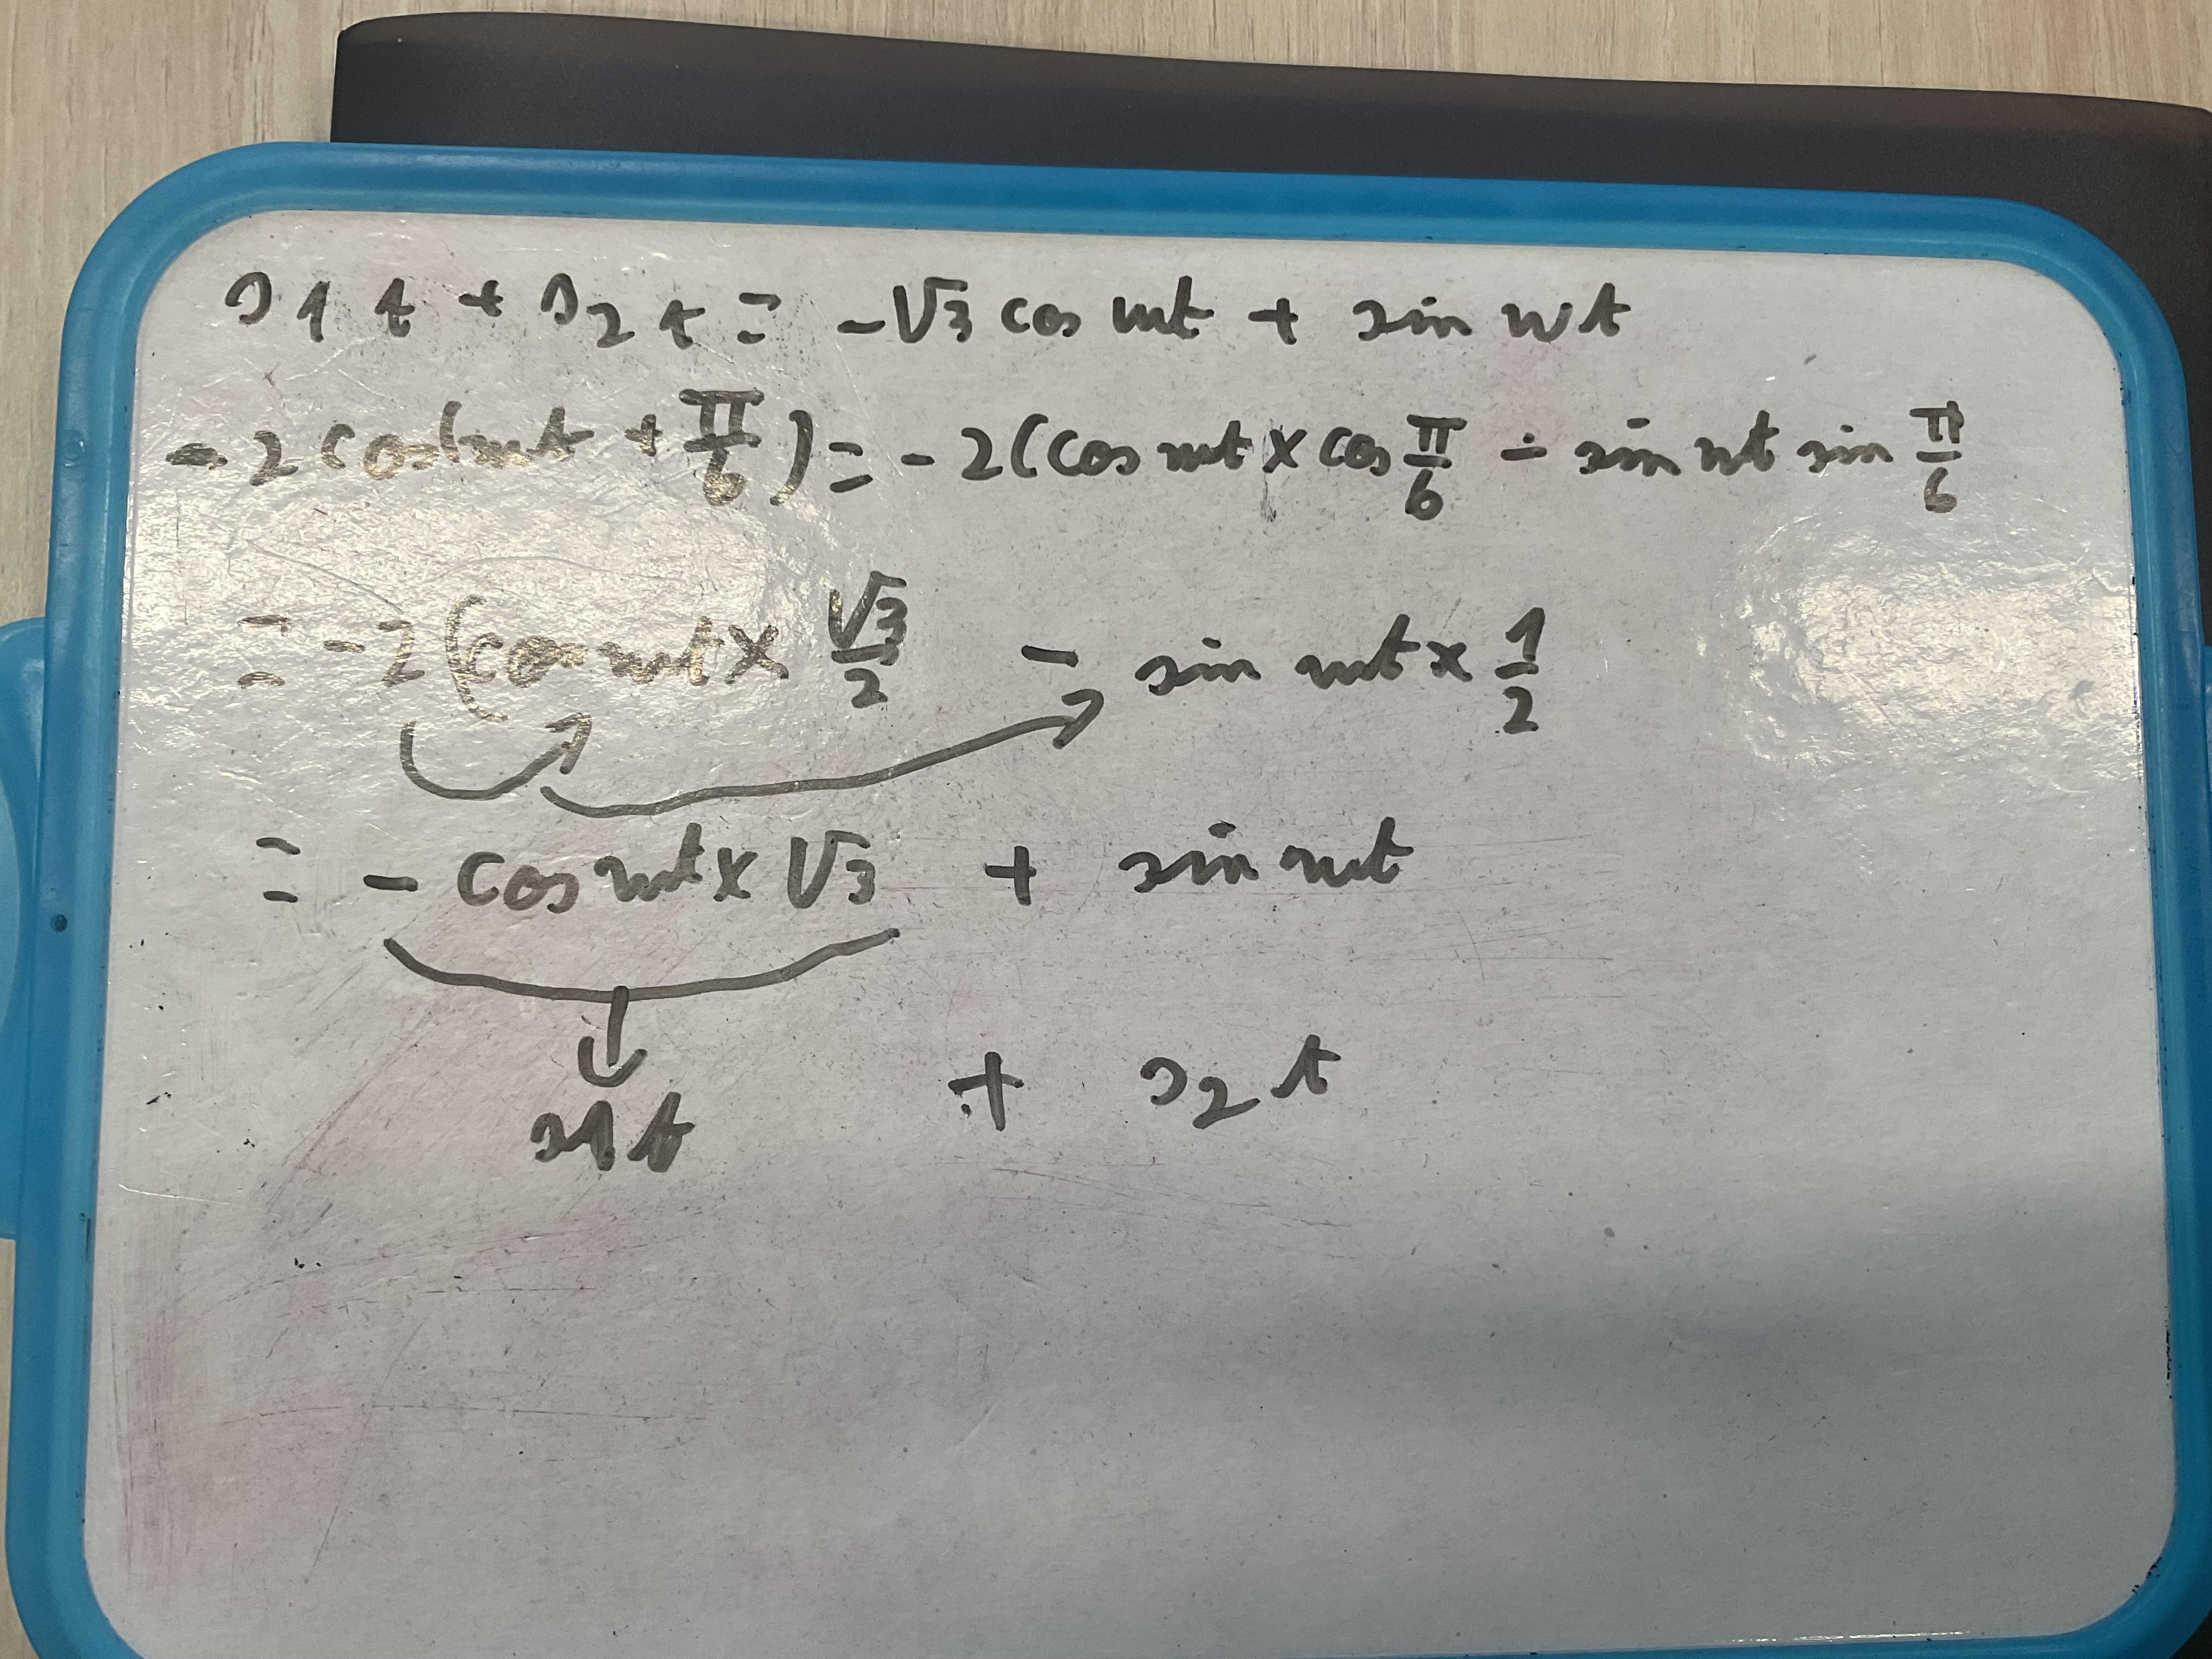 s1 t + s2 t = -√3 cos wt + sin wt
-2 cos(wt + π/6) = -2(cos wt × cos π/6 - sin wt sin π/6
= -2(cos wt × √3/2 - sin wt × 1/2
= - cos wt × √3 + sin wt
s1 t + s2 t